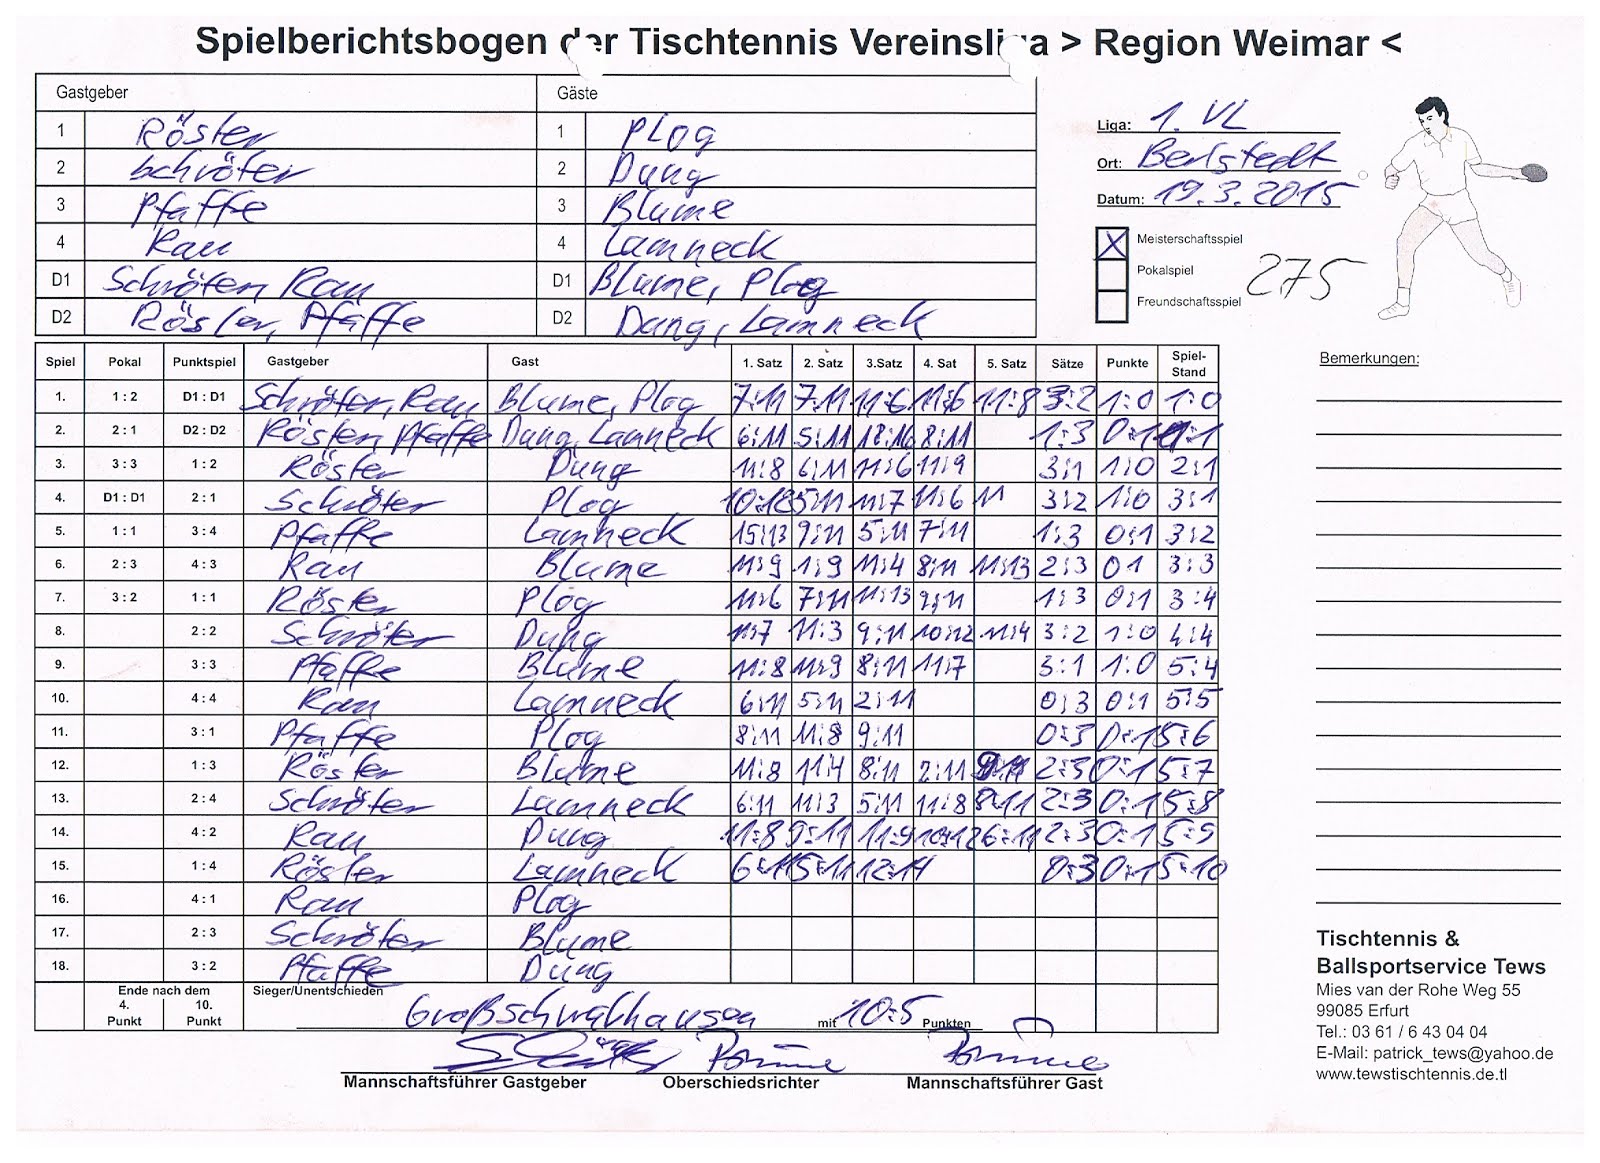 Spielberichtsbogen der Tischtennis Vereinsliga > Region Weimar <
Gastgeber Gäste
1 Röster 1 Plog
2 Schröter 2 Dung
3 Pfaffe 3 Blume
4 Rau 4 Lamneck
D1 Schröter, Rau D1 Blume, Plog
D2 Röster, Pfaffe D2 Dung, Lamneck
Liga: 1. VL
Ort: Berlstedt
Datum: 19.3.2015
X Meisterschaftsspiel
Pokalspiel
Freundschaftsspiel
275
Spiel Pokal Punktspiel Gastgeber Gast 1. Satz 2. Satz 3.Satz 4. Sat 5. Satz Sätze Punkte Spiel-Stand
1. 1 : 2 D1 : D1 Schröter, Rau Blume, Plog 7:11 7:11 11:6 11:6 11:8 3:2 1:0 1:0
2. 2 : 1 D2 : D2 Röster, Pfaffe Dung, Lamneck 6:11 5:11 18:16 8:11 1:3 0:1 1:1
3. 3 : 3 1 : 2 Röster Dung 11:8 6:11 11:6 11:9 3:1 1:0 2:1
4. D1 : D1 2 : 1 Schröter Plog 10:12 5:11 11:7 11:6 11 3:2 1:0 3:1
5. 1 : 1 3 : 4 Pfaffe Lamneck 15:13 9:11 5:11 7:11 1:3 0:1 3:2
6. 2 : 3 4 : 3 Rau Blume 11:9 1:9 11:4 8:11 11:13 2:3 01 3:3
7. 3 : 2 1 : 1 Röster Plog 11:6 7:11 11:13 9:11 1:3 0:1 3:4
8. 2 : 2 Schröter Dung 11:7 11:3 9:11 10:12 11:4 3:2 1:0 4:4
9. 3 : 3 Pfaffe Blume 11:8 11:9 8:11 11:7 3:1 1:0 5:4
10. 4 : 4 Rau Lamneck 6:11 5:11 2:11 0:3 0:1 5:5
11. 3 : 1 Pfaffe Plog 8:11 11:8 9:11 0:3 0:1 5:6
12. 1 : 3 Röster Blume 11:8 11:4 8:11 2:11 9:11 2:3 0:1 5:7
13. 2 : 4 Schröter Lamneck 6:11 11:3 5:11 11:8 8:11 2:3 0:1 5:8
14. 4 : 2 Rau Dung 11:8 9:11 11:9 10:12 6:11 2:3 0:1 5:9
15. 1 : 4 Röster Lamneck 6:11 5:11 12:14 0:3 0:1 5:10
16. 4 : 1 Rau Plog
17. 2 : 3 Schröter Blume
18. 3 : 2 Pfaffe Dung
Ende nach dem
4. Punkt 10. Punkt
Sieger/Unentschieden
Großschwabhausen mit 10:5 Punkten
Mannschaftsführer Gastgeber Oberschiedsrichter Mannschaftsführer Gast
Bemerkungen:
Tischtennis &
Ballsportservice Tews
Mies van der Rohe Weg 55
99085 Erfurt
Tel.: 03 61 / 6 43 04 04
E-Mail: patrick_tews@yahoo.de
www.tewstischtennis.de.tl